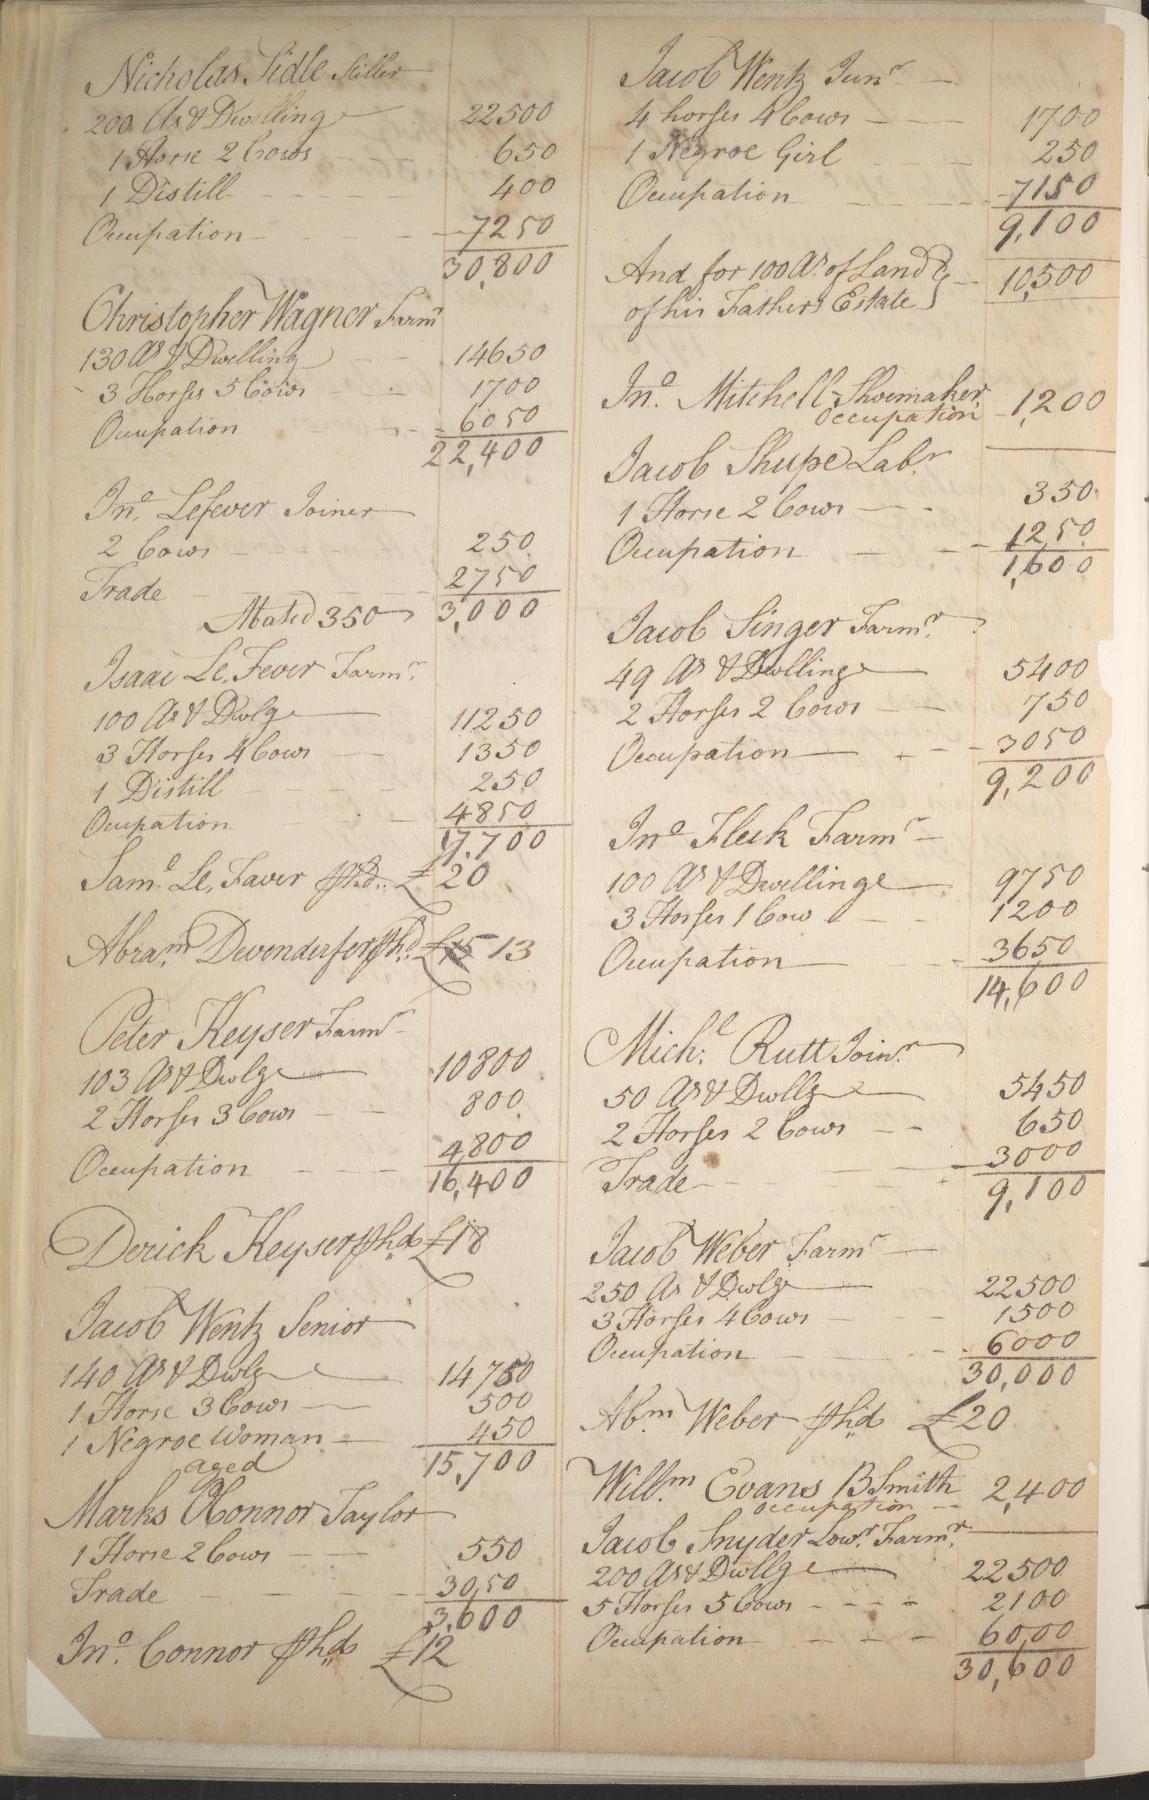 Nicholas Sidle Miller
200 As & Dwelling 22500
1 Horse 2 Cows 650
1 Distill 400
Occupation 7250
30,800
Christopher Wagner Farmr
130 As & Dwelling 14650
3 Horses 5 Cows 1700
Occupation 6050
22,400
Jno. Lefever Joiner
2 Cows 250
Trade 2750
Abated 350 3,000
Isaac Le, Fever Farmr.
100 As & Dwlg 11250
3 Horses 4 Cows 1350
1 Distill 250
Ocupation 4850
17,700
Saml. Le, Faver fhd. £20
Abram Devenderfer fhd £15 13
Peter Keyser Farmr
103 As & Dwlg 10800
2 Horses 3 Cows 800
Occupation 4,800
16,400
Derick Keyser fhd £18
Jacob Wentz Senior
140 As & Dwlg 14750
1 Horse 3 Cows 500
1 Negroe Woman 450
aged 15,700
Marks OConnor Taylor
1 Horse 2 Cows 550
Trade 3050
3,600
Jno. Connor fhd £12
Jacob Wentz Junr
4 horses 4 Cows 1700
1 Negroe Girl 250
Occupation 7150
9,100
And for 100 As. of Land
of his Fathers Estate 10,500
Jno. Mitchell Shoemaker
Occupation 1,200
Jacob Shupe Labr
1 Horse 2 Cows 350
Occupation 1250
1,600
Jacob Singer Farmr.
49 As & Dwelling 5400
2 Horses 2 Cows 750
Occupation 3050
9,200
Jno Fleck Farmr
100 As & Dwellinge 9750
3 Horses 1 Cow 1200
Occupation 3650
14,600
Michl. Rutt Joinr
50 As & Dwllg 5450
2 Horses 2 Cows 650
Trade 3000
9,100
Jacob Weber Farmr
250 As & Dwlg 22500
3 Horses 4 Cows 1500
Occupation 6000
30,000
Abm Weber fhd £20
Willm. Evans BSmith 2,400
occupation
Jacob Snyder Lowr. Farmr.
200 As & Dwllg 22500
5 Horses 5 Cows 2100
Occupation 6000
30,600